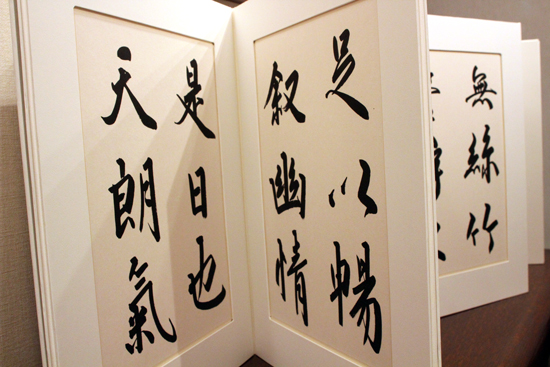 無絲竹
足以暢
叙幽情
是日也
天朗氣